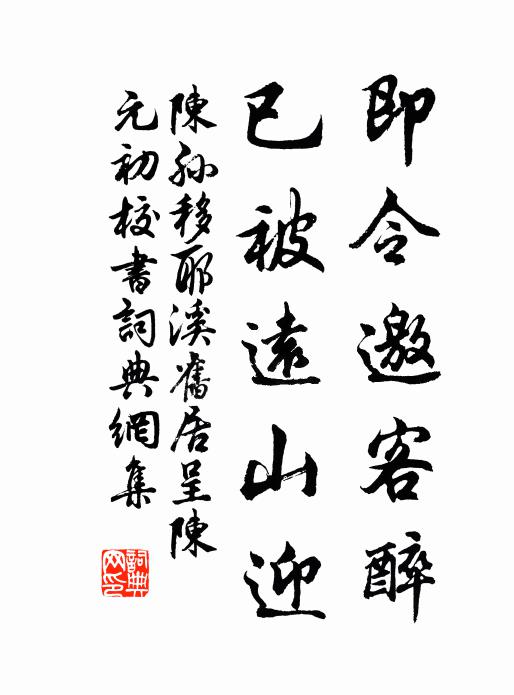 即令邀客醉
已被遠山迎
陳孫移耶溪舊居呈陳
元初校書詞典網集
詞典
网印